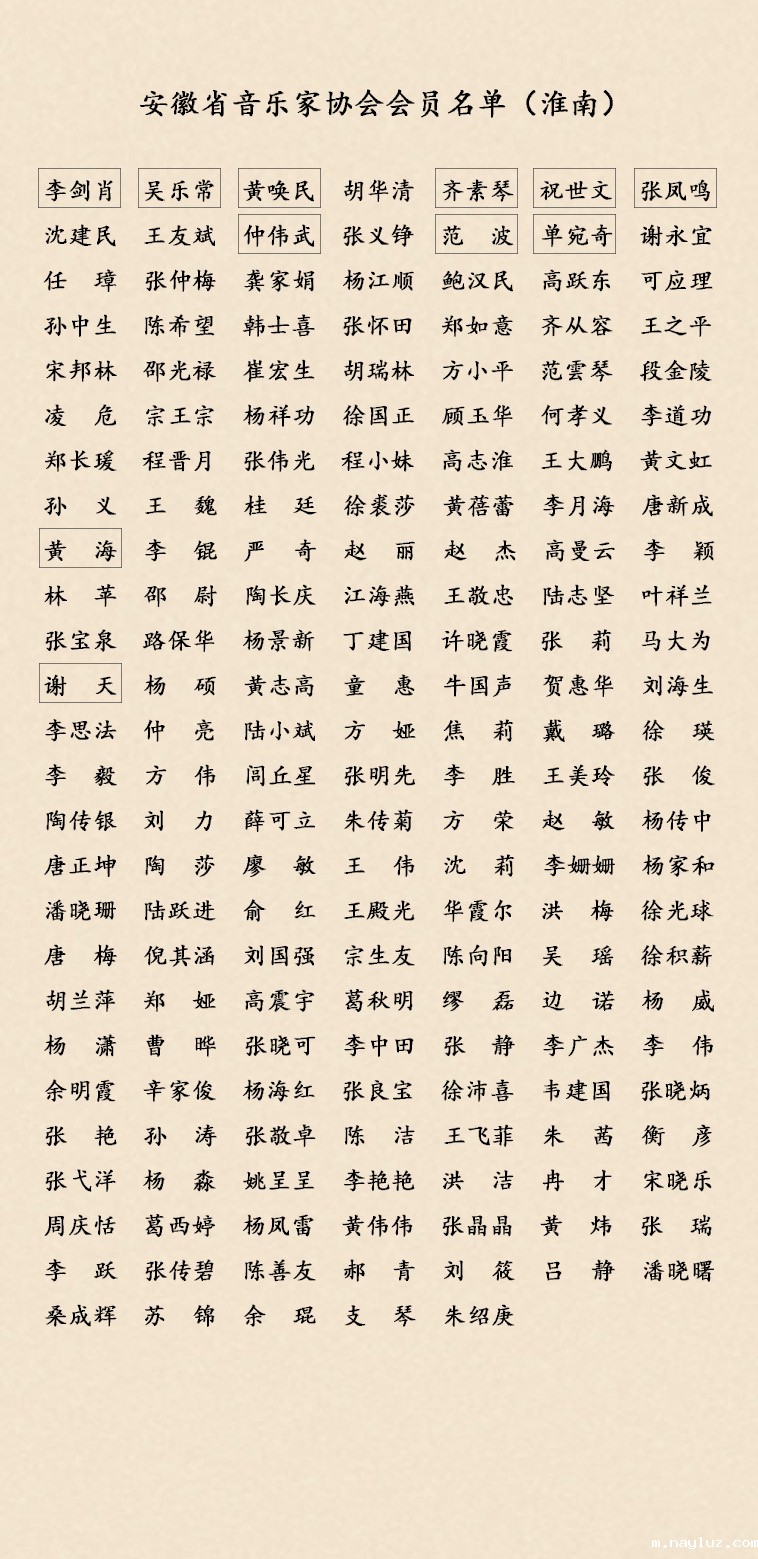 安徽省音乐家协会会员名单（淮南）
李剑肖 吴乐常 黄唤民 胡华清 齐素琴 祝世文 张凤鸣
沈建民 王友斌 仲伟武 张义铮 范波 单宛奇 谢永宜
任璋 张仲梅 龚家娟 杨江顺 鲍汉民 高跃东 可应理
孙中生 陈希望 韩士喜 张怀田 郑如意 齐从容 王之平
宋邦林 邵光禄 崔宏生 胡瑞林 方小平 范雲琴 段金陵
凌危 宗王宗 杨祥功 徐国正 顾玉华 何孝义 李道功
郑长瑗 程晋月 张伟光 程小妹 高志淮 王大鹏 黄文虹
孙义 王魏 桂廷 徐裘莎 黄蓓蕾 李月海 唐新成
黄海 李锟 严奇 赵丽 赵杰 高曼云 李颖
林苹 邵尉 陶长庆 江海燕 王敬忠 陆志坚 叶祥兰
张宝泉 路保华 杨景新 丁建国 许晓霞 张莉 马大为
谢天 杨硕 黄志高 童惠 牛国声 贺惠华 刘海生
李思法 仲亮 陆小斌 方娅 焦莉 戴璐 徐瑛
李毅 方伟 闾丘星 张明先 李胜 王美玲 张俊
陶传银 刘力 薛可立 朱传菊 方荣 赵敏 杨传中
唐正坤 陶莎 廖敏 王伟 沈莉 李姗姗 杨家和
潘晓珊 陆跃进 俞红 王殿光 华霞尔 洪梅 徐光球
唐梅 倪其涵 刘国强 宗生友 陈向阳 吴瑶 徐积薪
胡兰萍 郑娅 高震宇 葛秋明 缪磊 边诺 杨威
杨潇 曹晔 张晓可 李中田 张静 李广杰 李伟
余明霞 辛家俊 杨海红 张良宝 徐沛喜 韦建国 张晓炳
张艳 孙涛 张敬卓 陈洁 王飞菲 朱茜 衡彦
张弋洋 杨淼 姚呈呈 李艳艳 洪洁 冉才 宋晓乐
周庆恬 葛西婷 杨凤雷 黄伟伟 张晶晶 黄炜 张瑞
李跃 张传碧 陈善友 郝青 刘筱 吕静 潘晓曙
桑成辉 苏锦 余琨 支琴 朱绍庚
m.nayluz.com